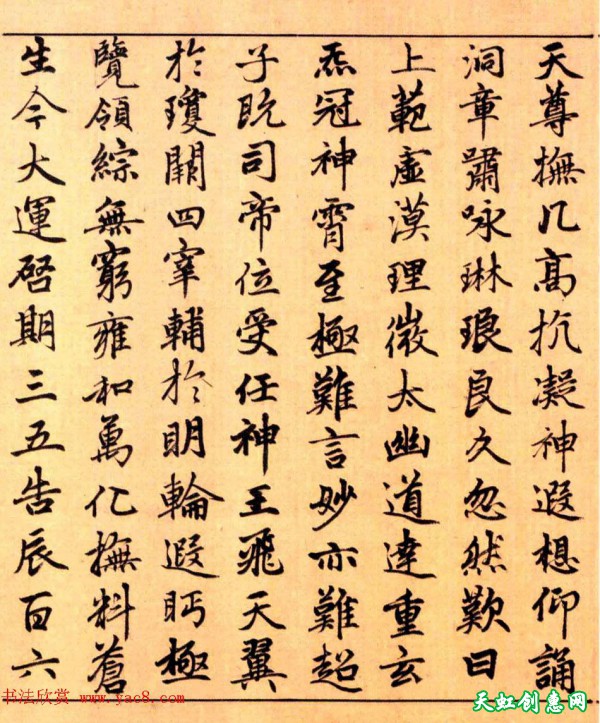 天尊撫几高抗凝神遐想仰誦
洞章嘯咏琳琅良久忽然歎曰
上範虛漠理微太幽道達重玄
炁冠神霄至極難言妙亦難超
子既司帝位受任神王飛天翼
於瓊闕四宰輔於明輪遐眄極
覽領綜無窮雍和萬化撫料蒼
生今大運啓期三五告辰百六
书法欣赏 www.yac8.com
天虹创惠网